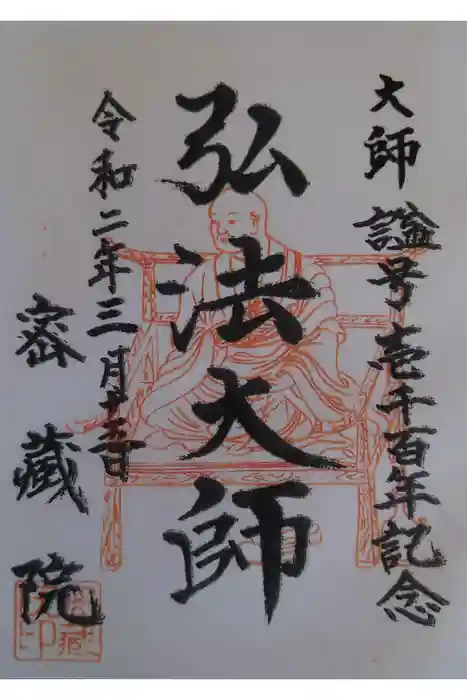 大師諡号壱千百年記念
弘法大師
令和二年三月十五日
密蔵院